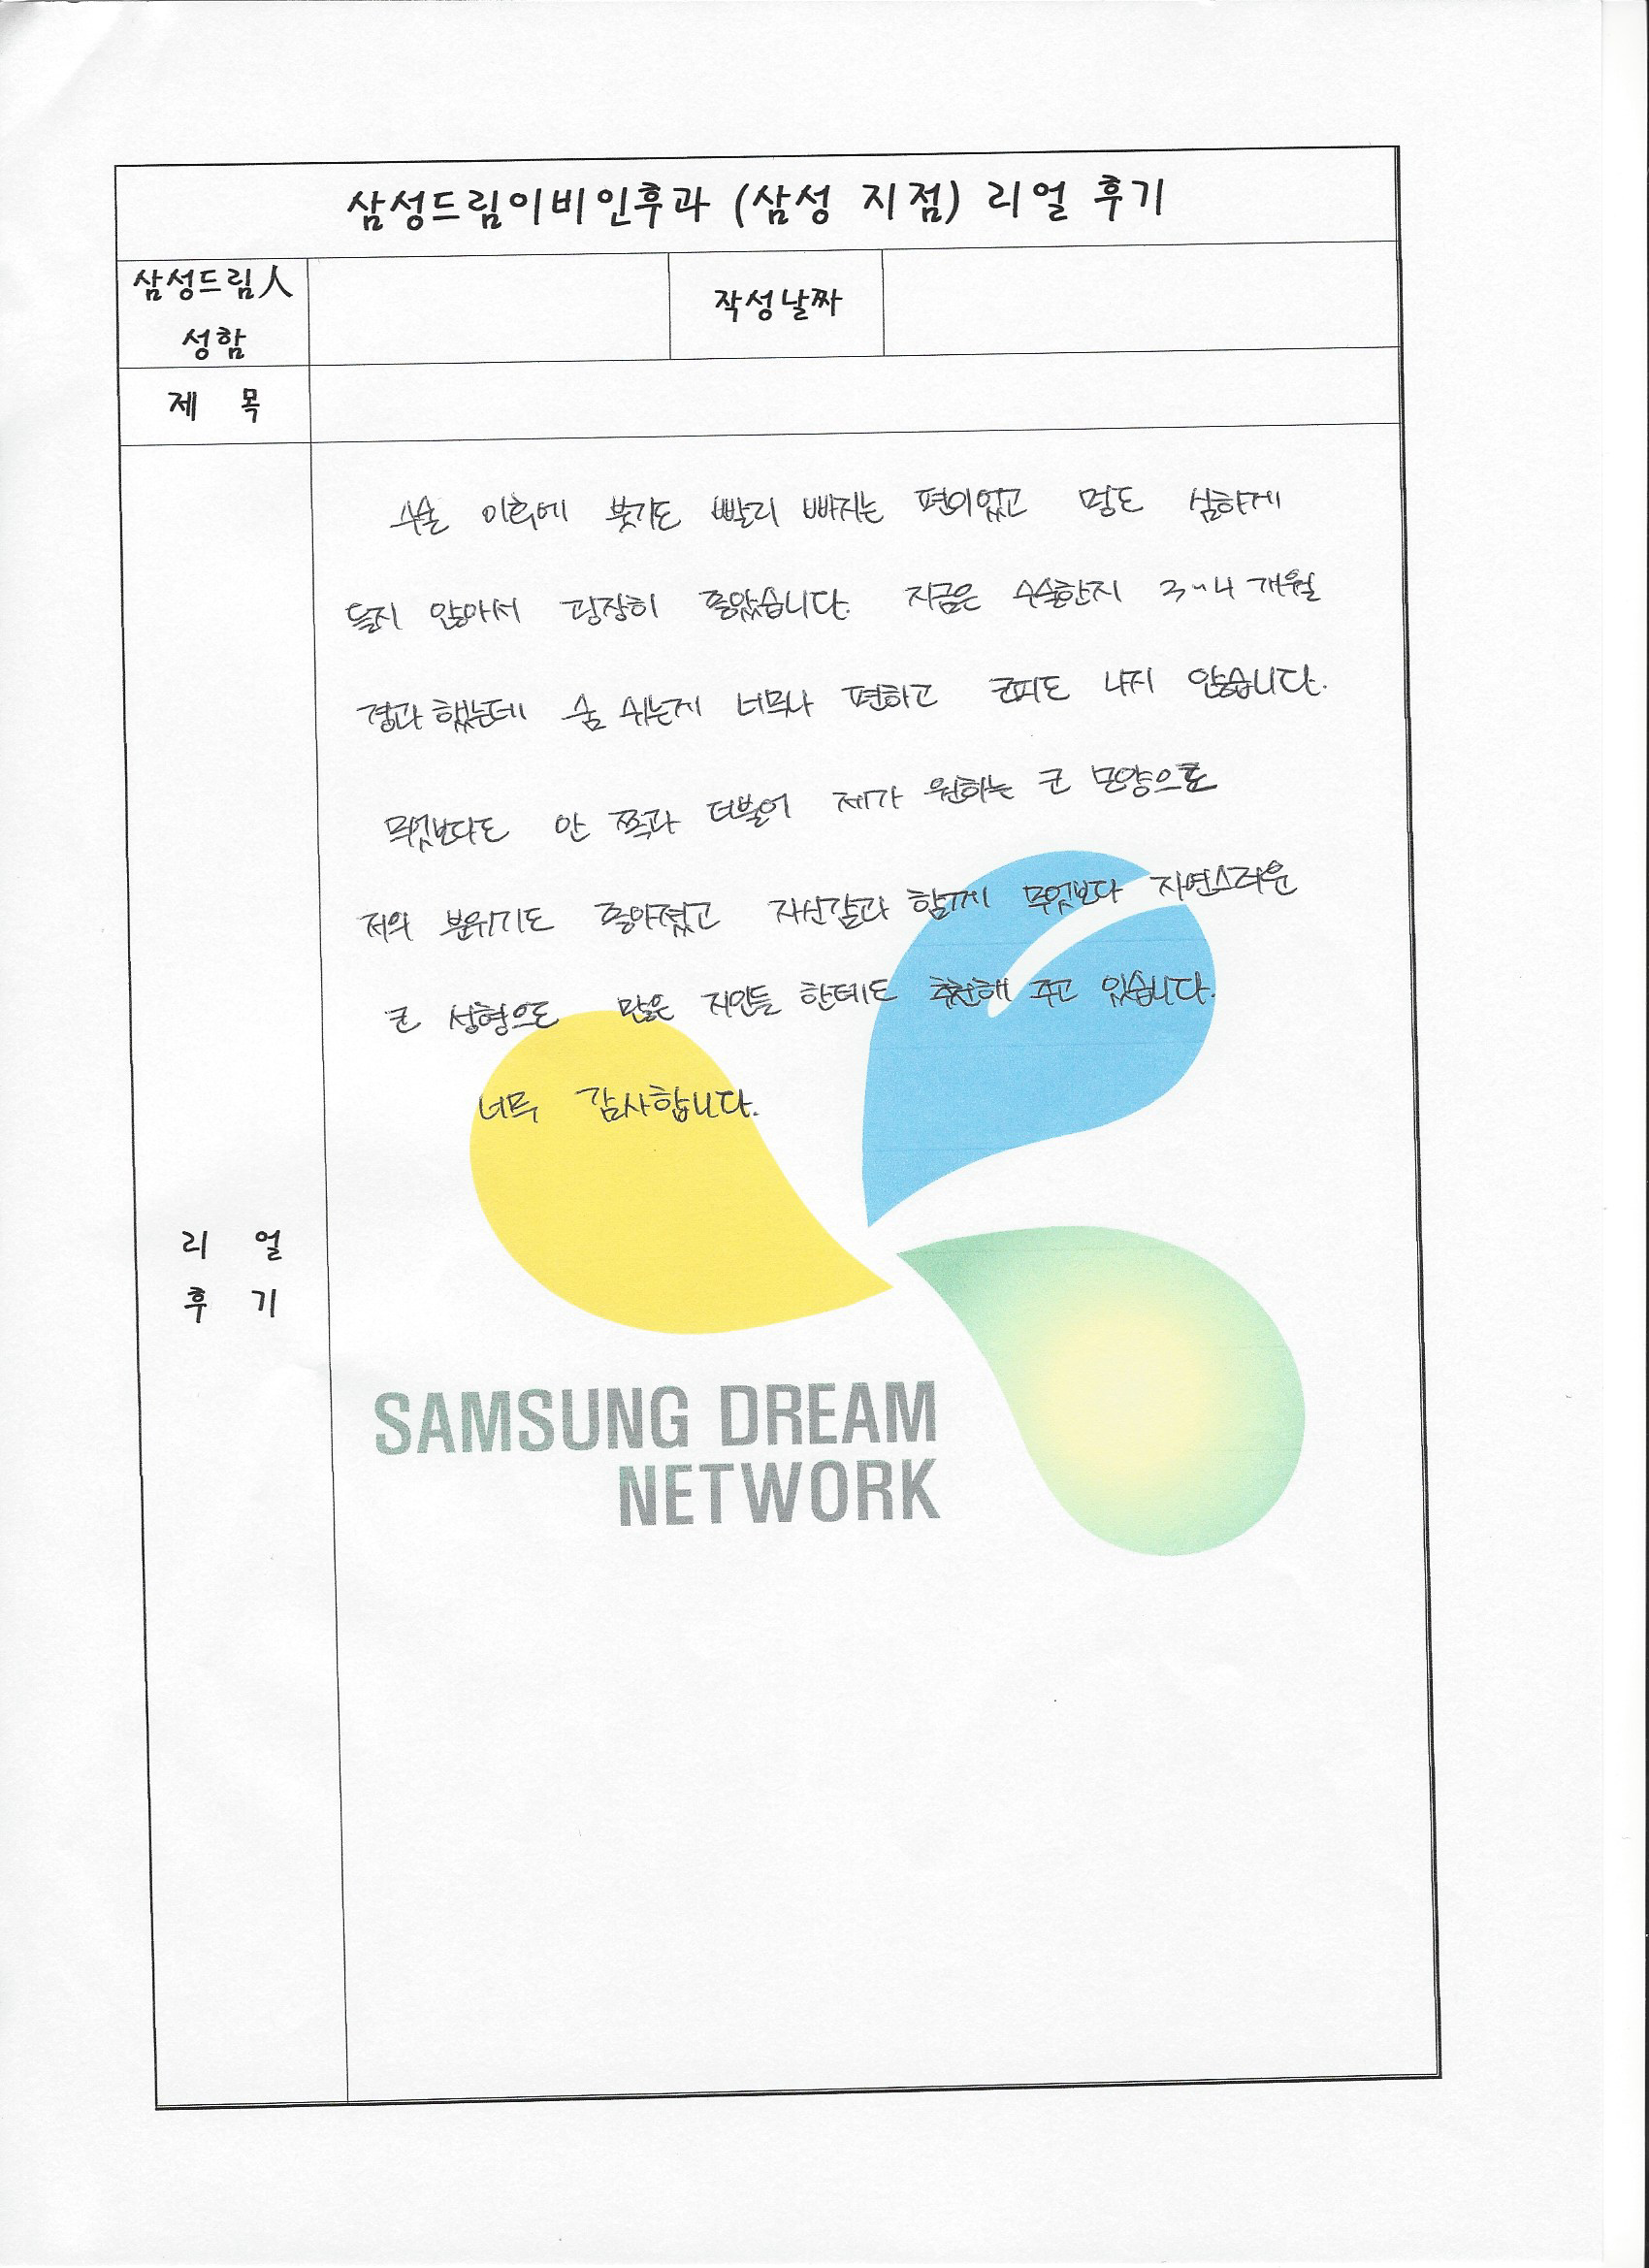 삼성드림이비인후과 (삼성 지점) 리얼 후기
삼성드림人
성함
작성날짜
제 목
수술 이후에 붓기도 빨리 빠지는 편이었고 멍도 심하게
들지 않아서 굉장히 좋았습니다. 지금은 수술한지 3~4 개월
경과 했는데 숨 쉬는게 너무나 편하고 코피도 나지 않습니다.
무엇보다도 안 쪽과 더불어 제가 원하는 코 모양으로
저의 분위기도 좋아졌고 자신감과 함께 무엇보다 자연스러운
코 성형으로 많은 지인들 한테도 추천해 주고 있습니다.
너무 감사합니다.
리 얼
후 기
SAMSUNG DREAM
NETWORK